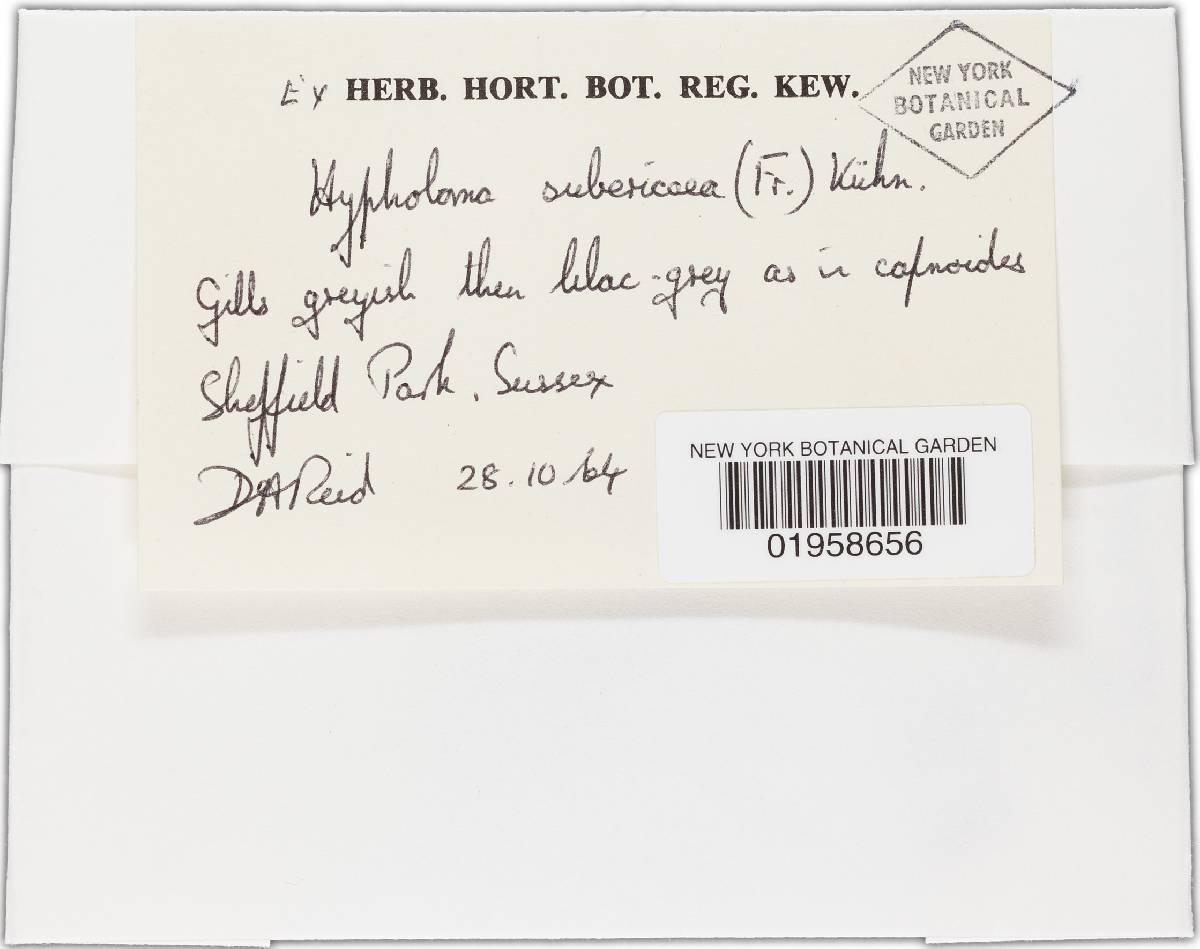 Ex HERB. HORT. BOT. REG. KEW.
NEW YORK
BOTANICAL
GARDEN
Hypholoma subericaea (Fr.) Kühn.
Gills greyish then lilac-grey as in capnoides
Sheffield Park, Sussex
DAReid 28.10.64
NEW YORK BOTANICAL GARDEN
01958656